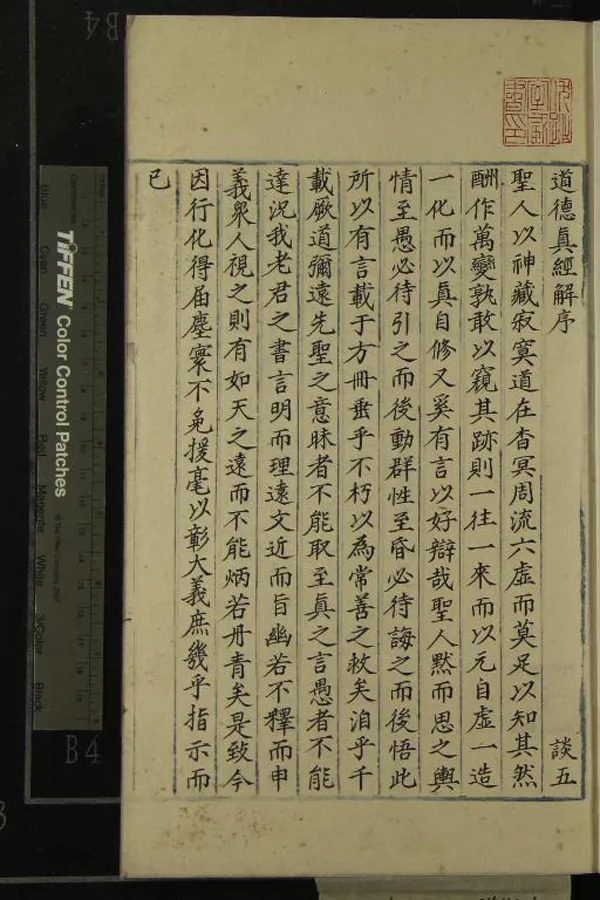 道德眞經解序 談五
聖人以神藏寂寞道在杳冥周流六虛而莫足以知其然
酬作萬變孰敢以窺其跡則一往一來而以元自虛一造
一化而以眞自修又奚有言以好辯哉聖人默而思之輿
情至愚必待引之而後動群性至昏必待誨之而後悟此
所以有言載于方冊垂乎不朽以為常善之救矣洎乎千
載厥道彌遠先聖之意昧者不能取至眞之言愚者不能
達況我老君之書言明而理遠文近而旨幽若不釋而申
義衆人視之則有如天之遠而不能炳若丹青矣是致今
因行化得届塵寰不免援毫以彰大義庶幾乎指示而
已
B4
TIFFEN Color Control Patches
Blue
Cyan
Green
Yellow
Red
Magenta
White
3/Color
Black
B4